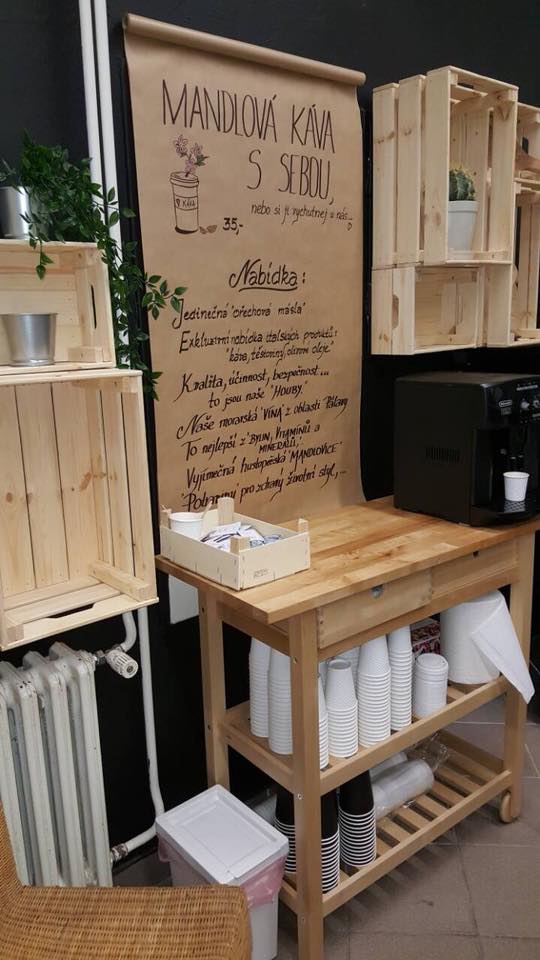 MANDLOVÁ KÁVA
S SEBOU,
nebo si ji vychutnej u nás...
KÁVA
35,-
Nabídka:
Jedinečná "ořechová másla"
Exkluzivní nabídka italských produktů:
"káva, těstoviny, olivní oleje."
Kvalita, účinnost, bezpečnost...
to jsou naše 'HOUBY.'
Naše moravská 'VÍNA' z oblasti Pálavy
To nejlepší z 'BYLIN, VITAMÍNŮ a
MINERÁLŮ,'
Vyjímečná hustopečská 'MANDLOVICE'
'Potraviny' pro zdravý životní styl,...
DeLonghi